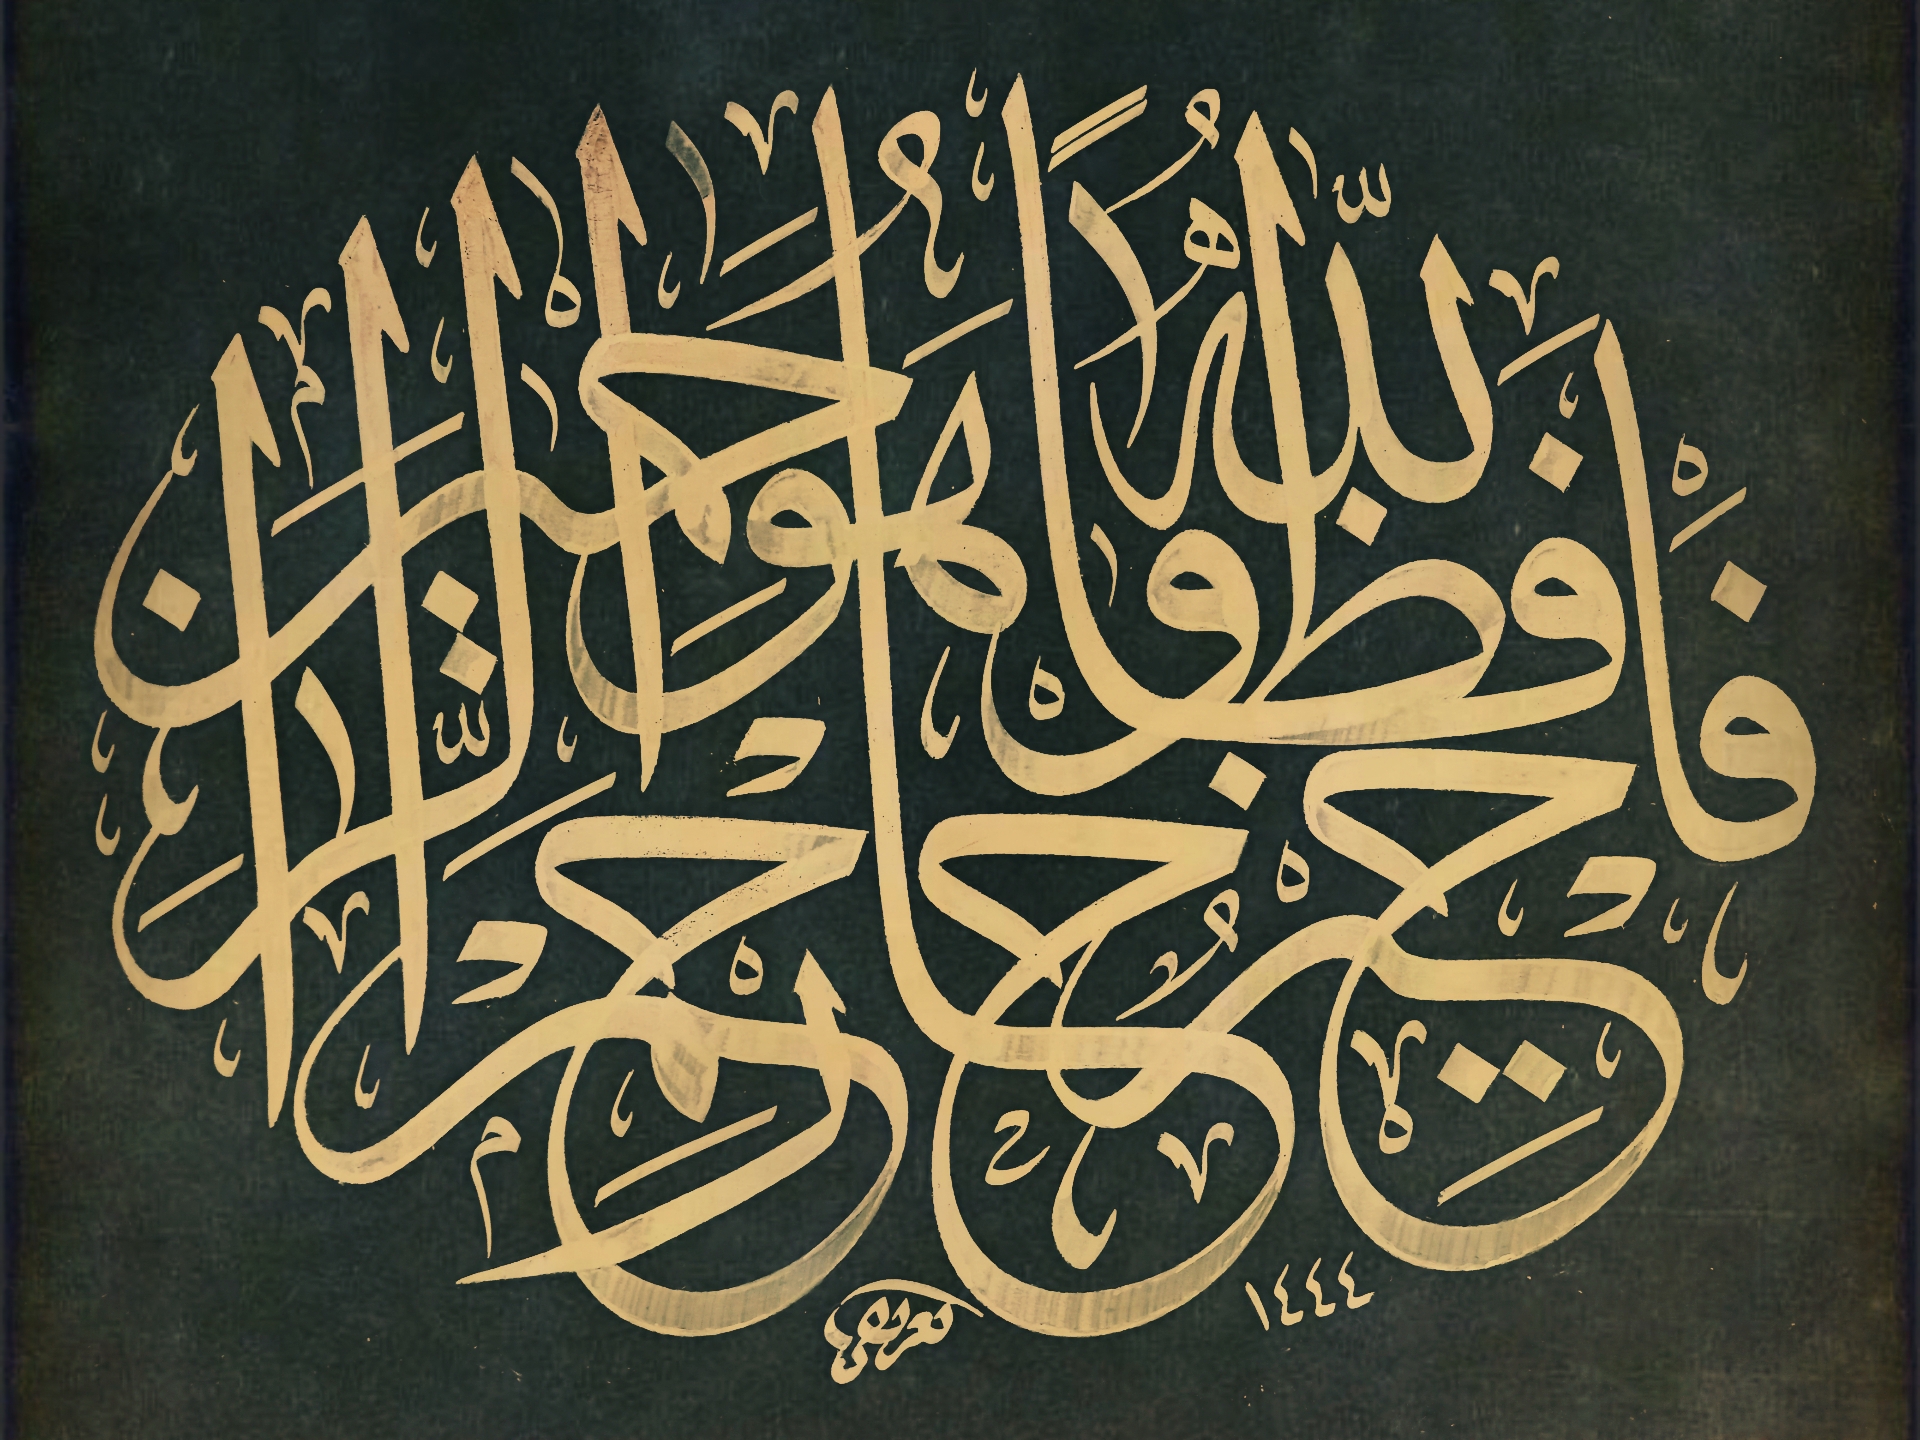 فَاللّٰهُ خَيْرٌ حَافِظًا وَهُوَ اَرْحَمُ الرَّاحِمِينَ
١٤٤٤